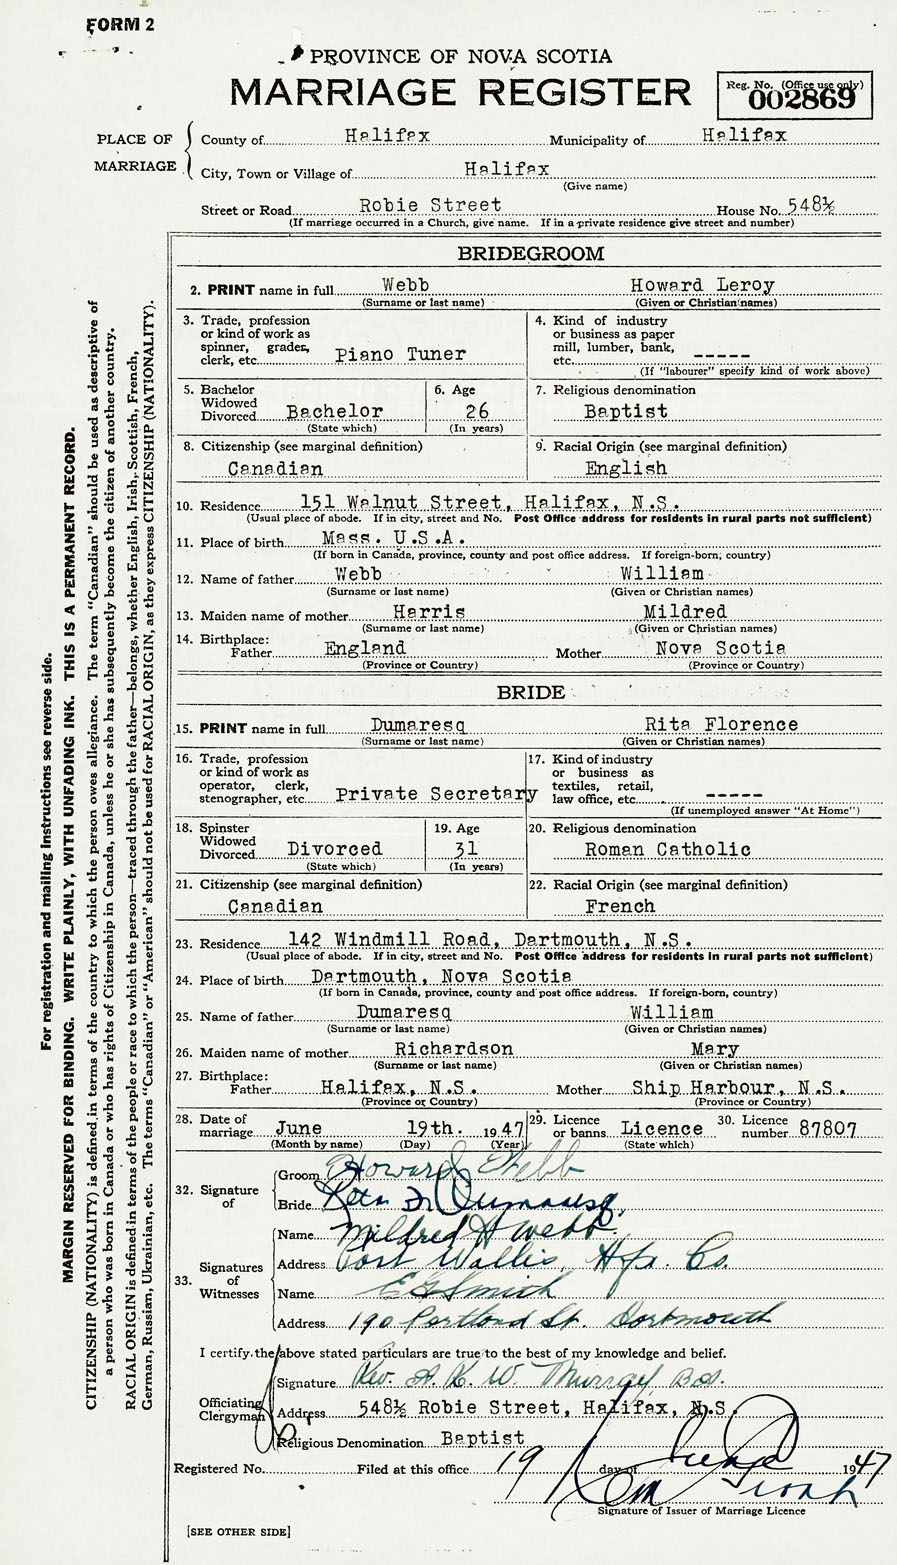 FORM 2
PROVINCE OF NOVA SCOTIA
MARRIAGE REGISTER
Reg. No. (Office use only)
002869
PLACE OF MARRIAGE
County of Halifax Municipality of Halifax
City, Town or Village of Halifax
(Give name)
Street or Road Robie Street House No. 548½
(If marriage occurred in a Church, give name. If in a private residence give street and number)
BRIDEGROOM
2. PRINT name in full Webb Howard Leroy
(Surname or last name) (Given or Christian names)
3. Trade, profession
or kind of work as
spinner, grader,
clerk, etc. Piano Tuner
4. Kind of industry
or business as paper
mill, lumber, bank,
etc. -----
(If "labourer" specify kind of work above)
5. Bachelor
Widowed
Divorced Bachelor
(State which)
6. Age
26
(In years)
7. Religious denomination
Baptist
8. Citizenship (see marginal definition)
Canadian
9. Racial Origin (see marginal definition)
English
10. Residence 151 Walnut Street, Halifax, N.S.
(Usual place of abode. If in city, street and No. Post Office address for residents in rural parts not sufficient)
11. Place of birth Mass. U.S.A.
(If born in Canada, province, county and post office address. If foreign-born, country)
12. Name of father Webb William
(Surname or last name) (Given or Christian names)
13. Maiden name of mother Harris Mildred
(Surname or last name) (Given or Christian names)
14. Birthplace:
Father England Mother Nova Scotia
(Province or Country) (Province or Country)
BRIDE
15. PRINT name in full Dumaresq Rita Florence
(Surname or last name) (Given or Christian names)
16. Trade, profession
or kind of work as
operator, clerk,
stenographer, etc. Private Secretary
17. Kind of industry
or business as
textiles, retail,
law office, etc. -----
(If unemployed answer "At Home")
18. Spinster
Widowed
Divorced Divorced
(State which)
19. Age
31
(In years)
20. Religious denomination
Roman Catholic
21. Citizenship (see marginal definition)
Canadian
22. Racial Origin (see marginal definition)
French
23. Residence 142 Windmill Road, Dartmouth, N.S.
(Usual place of abode. If in city, street and No. Post Office address for residents in rural parts not sufficient)
24. Place of birth Dartmouth, Nova Scotia
(If born in Canada, province, county and post office address. If foreign-born, country)
25. Name of father Dumaresq William
(Surname or last name) (Given or Christian names)
26. Maiden name of mother Richardson Mary
(Surname or last name) (Given or Christian names)
27. Birthplace:
Father Halifax, N.S. Mother Ship Harbour, N.S.
(Province or Country) (Province or Country)
28. Date of
marriage June 19th. 1947
(Month by name) (Day) (Year)
29. Licence
or banns Licence
(State which)
30. Licence
number 87807
32. Signature of
Groom Howard Webb
Bride Rita F. Dumaresq
33. Signatures of Witnesses
Name Mildred H Webb
Address Port Wallis, Hfx. Co.
Name E G Smith
Address 190 Portland St. Dartmouth
I certify the above stated particulars are true to the best of my knowledge and belief.
Officiating Clergyman
Signature Rev. A. K. W. Murray,
Address 548½ Robie Street, Halifax, N.S.
Religious Denomination Baptist
Registered No. Filed at this office 19 day of June 1947
Signature of Issuer of Marriage Licence
[SEE OTHER SIDE]
For registration and mailing instructions see reverse side.
MARGIN RESERVED FOR BINDING. WRITE PLAINLY, WITH UNFADING INK. THIS IS A PERMANENT RECORD.
CITIZENSHIP (NATIONALITY) is defined in terms of the country to which the person owes allegiance. The term "Canadian" should be used as descriptive of
a person who was born in Canada or who has rights of Citizenship in Canada, unless he or she has subsequently become the citizen of another country.
RACIAL ORIGIN is defined in terms of the people or race to which the person—traced through the father—belongs, whether English, Irish, Scottish, French,
German, Russian, Ukrainian, etc. The terms "Canadian" or "American" should not be used for RACIAL ORIGIN, as they express CITIZENSHIP (NATIONALITY).